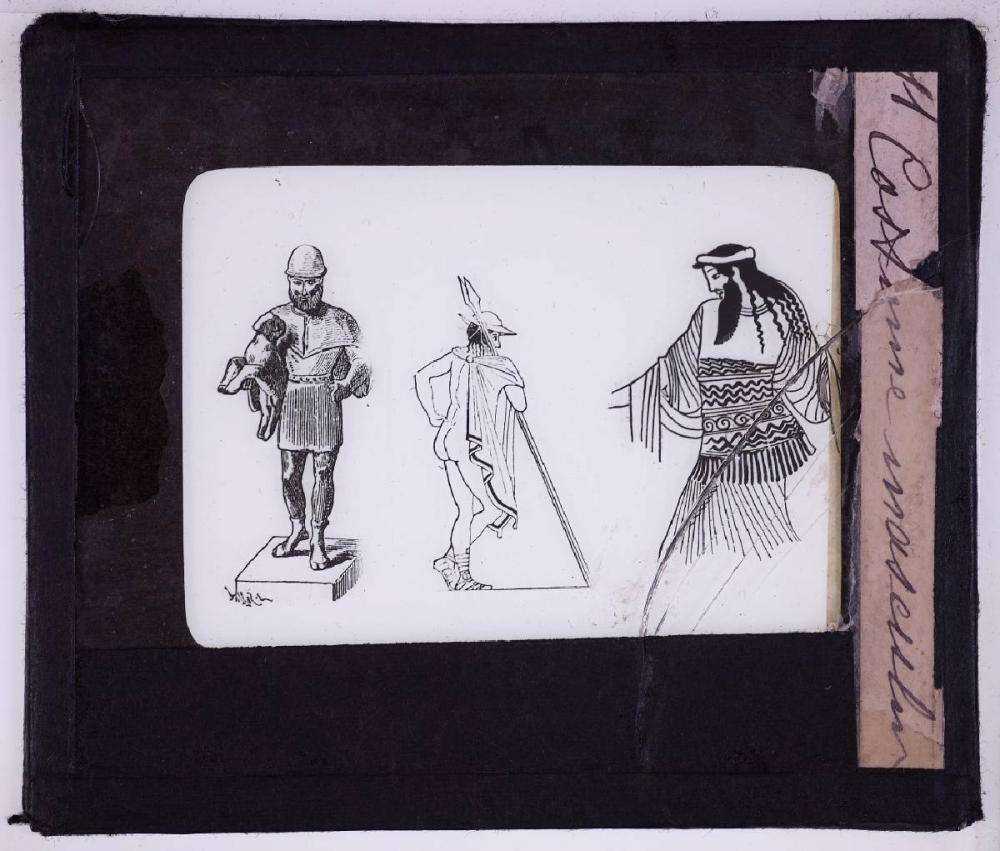 Costume masculin